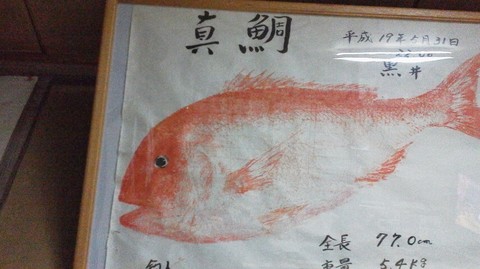 真鯛
平成19年5月31日
黒井
全長 77.0cm
重量 5.4kg